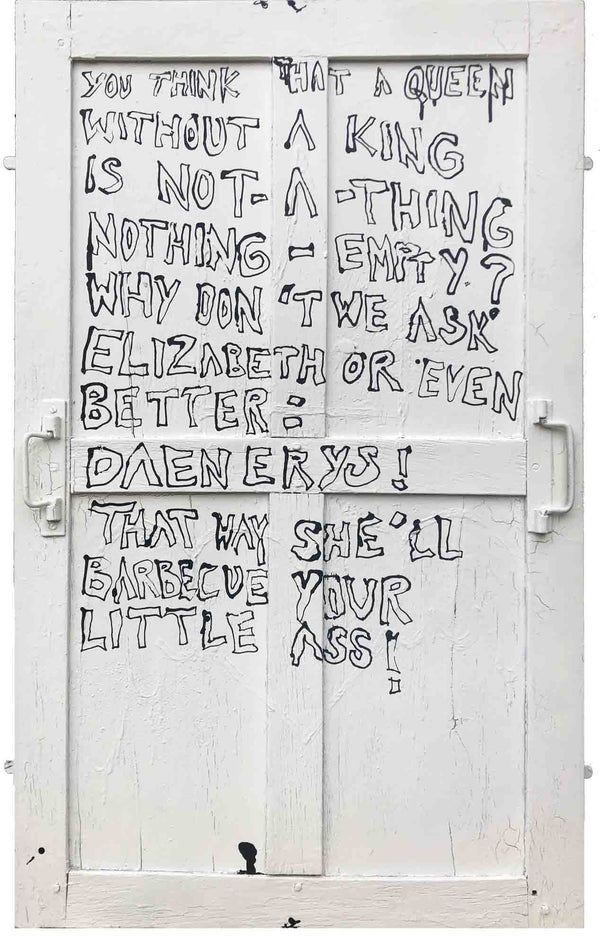 YOU THINK THAT A QUEEN
WITHOUT A KING
IS NOT- A -THING
NOTHING - EMPTY?
WHY DON'T WE ASK
ELIZABETH OR EVEN
BETTER:
DAENERYS!
THAT WAY SHE'LL
BARBECUE YOUR
LITTLE ASS!